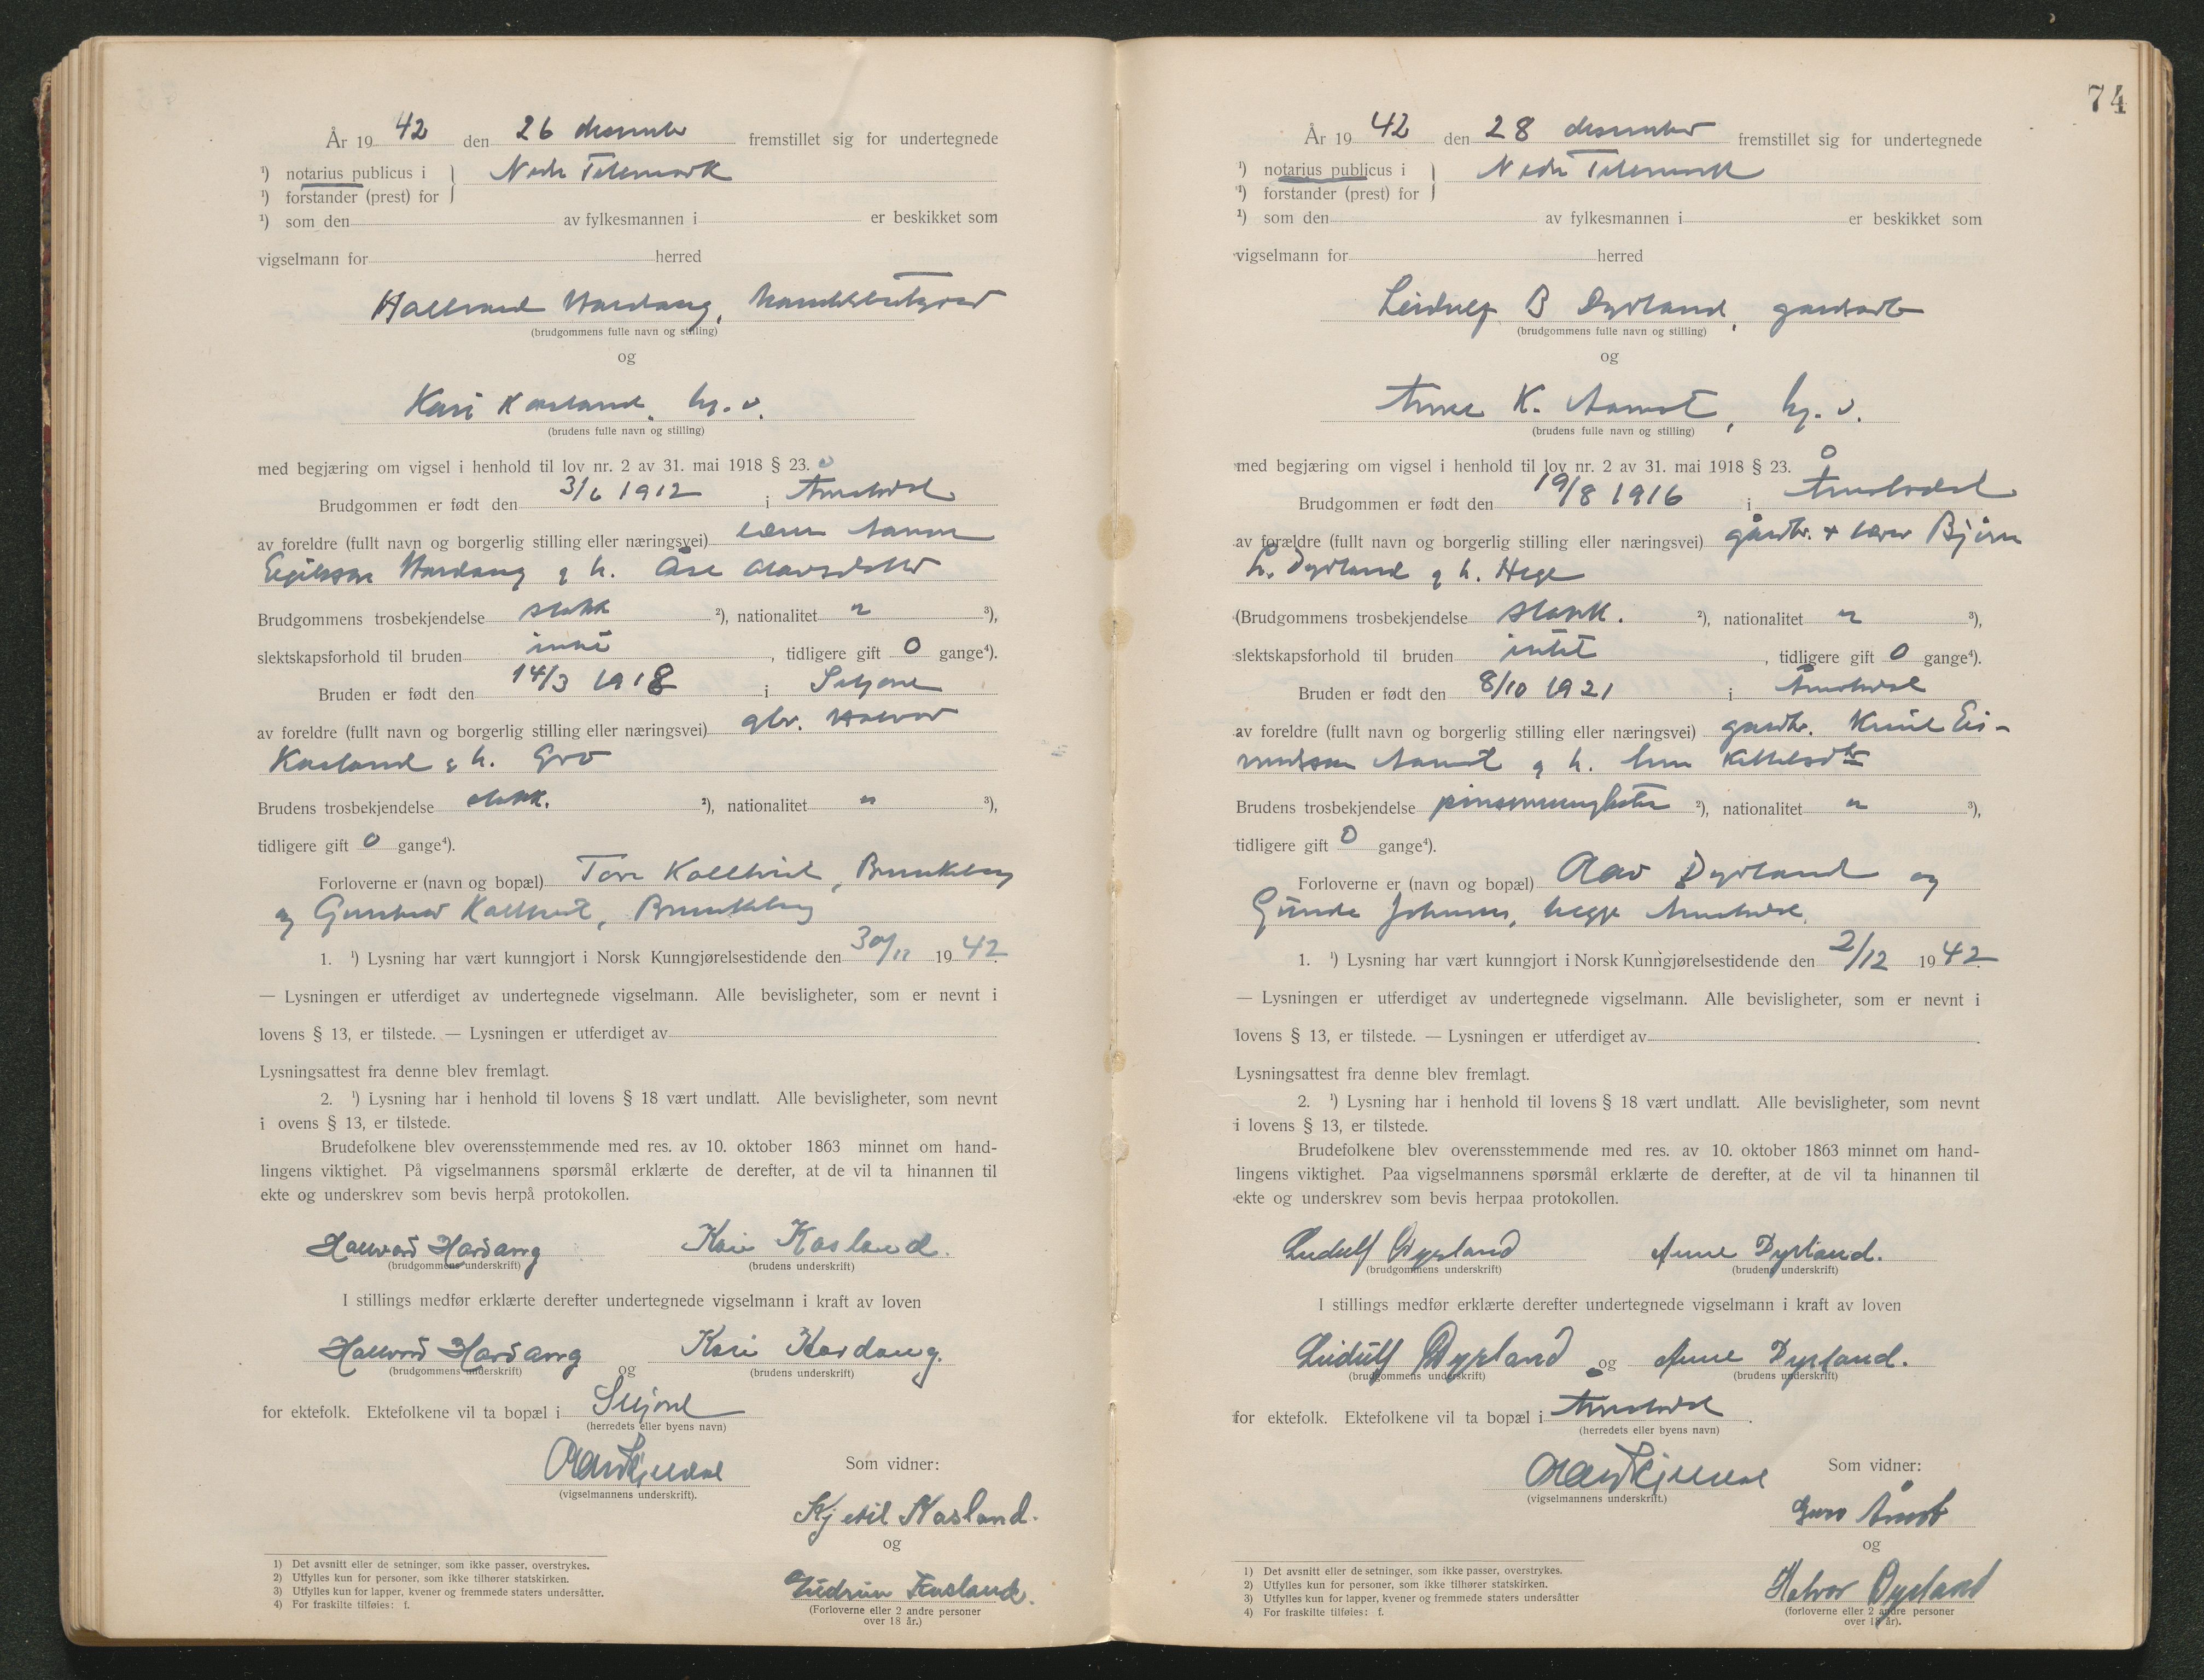 År 19 42 den 26 desember fremstillet sig for undertegnede
¹) notarius publicus i
Nedre Telemark
¹) forstander (prest) for
¹) som den av fylkesmannen i er beskikket som
vigselmann for herred
Hallvard Hardang,
(brudgommens fulle navn og stilling)
og
Kari Kasland, hg. v.
(brudens fulle navn og stilling)
med begjæring om vigsel i henhold til lov nr. 2 av 31. mai 1918 § 23.
Brudgommen er født den 3/6 1912 i Åmotsdal
av foreldre (fullt navn og borgerlig stilling eller næringsvei) lærer
Hardang g h. Åse Olavsdotter
Brudgommens trosbekjendelse statsk ²), nationalitet n ³),
slektskapsforhold til bruden intet, tidligere gift 0 gange⁴).
Bruden er født den 14/3 1918 i Seljord
av foreldre (fullt navn og borgerlig stilling eller næringsvei) gbr. Halvor
Kasland g h. Gro
Brudens trosbekjendelse statsk. ²), nationalitet n ³),
tidligere gift 0 gange⁴).
Forloverne er (navn og bopæl) Tore Kollhvit, Brunkeberg
og Gunhild Kollhvit, Brunkeberg
1. ¹) Lysning har vært kunngjort i Norsk Kunngjørelsestidende den 30/11 19 42.
— Lysningen er utferdiget av undertegnede vigselmann. Alle bevisligheter, som er nevnt i
lovens § 13, er tilstede. — Lysningen er utferdiget av
Lysningsattest fra denne blev fremlagt.
2. ¹) Lysning har i henhold til lovens § 18 vært undlatt. Alle bevisligheter, som nevnt
i ovens § 13, er tilstede.
Brudefolkene blev overensstemmende med res. av 10. oktober 1863 minnet om hand-
lingens viktighet. På vigselmannens spørsmål erklærte de derefter, at de vil ta hinannen til
ekte og underskrev som bevis herpå protokollen.
Hallvard Hardang Kari Kasland.
(brudgommens underskrift) (brudens underskrift)
I stillings medfør erklærte derefter undertegnede vigselmann i kraft av loven
Hallvard Hardang og Kari Hardang.
(brudgommens underskrift) (brudens underskrift)
for ektefolk. Ektefolkene vil ta bopæl i Seljord
(herredets eller byens navn)
(vigselmannens underskrift).
Som vidner:
Kjetil Kasland.
og
Gudrun Kasland.
(Forloverne eller 2 andre personer
over 18 år.)
1) Det avsnitt eller de setninger, som ikke passer, overstrykes.
2) Utfylles kun for personer, som ikke tilhører statskirken.
3) Utfylles kun for lapper, kvener og fremmede staters undersåtter.
4) For fraskilte tilføies: f.
74
År 19 42 den 28 desember fremstillet sig for undertegnede
¹) notarius publicus i
Nedre Telemark
¹) forstander (prest) for
¹) som den av fylkesmannen i er beskikket som
vigselmann for herred
Leidulf B Dyrland, gardsarb
(brudgommens fulle navn og stilling)
og
Anne K. Aamot, hg. v.
(brudens fulle navn og stilling)
med begjæring om vigsel i henhold til lov nr. 2 av 31. mai 1918 § 23.
Brudgommen er født den 19/8 1916 i Åmotsdal
av forældre (fullt navn og borgerlig stilling eller næringsvei) gardbr. + lærer Bjørn
L. Dyrland g h. Hege
(Brudgommens trosbekjendelse statsk. ²), nationalitet n ³),
slektskapsforhold til bruden intet, tidligere gift 0 gange⁴).
Bruden er født den 8/10 1921 i Åmotsdal
av foreldre (fullt navn og borgerlig stilling eller næringsvei) gardbr. Knut Ei-
vindson Aamot g h. Kittilsdtr
Brudens trosbekjendelse pinsemenigheten ²), nationalitet n ³),
tidligere gift 0 gange⁴).
Forloverne er (navn og bopæl) Olav Dyrland og
Gunde begge Åmotsdal.
1. ¹) Lysning har vært kunngjort i Norsk Kunngjørelsestidende den 2/12 19 42.
— Lysningen er utferdiget av undertegnede vigselmann. Alle bevisligheter, som er nevnt i
lovens § 13, er tilstede. — Lysningen er utferdiget av
Lysningsattest fra denne blev fremlagt.
2. ¹) Lysning har i henhold til lovens § 18 vært undlatt. Alle bevisligheter, som nevnt
i lovens § 13, er tilstede.
Brudefolkene blev overensstemmende med res. av 10. oktober 1863 minnet om hand-
lingens viktighet. Paa vigselmannens spørsmål erklærte de derefter, at de vil ta hinannen til
ekte og underskrev som bevis herpaa protokollen.
Leidulf Dyrland Anne Dyrland.
(brudgommens underskrift) (brudens underskrift)
I stillings medfør erklærte derefter undertegnede vigselmann i kraft av loven
Leidulf Dyrland og Anne Dyrland.
(brudgommens underskrift) (brudens underskrift)
for ektefolk. Ektefolkene vil ta bopæl i Åmotsdal.
(herredets eller byens navn)
(vigselmannens underskrift.)
Som vidner:
Guro Åmot
og
Halvor Dyrland
(forloverne eller 2 andre personer
over 18 år).
1) Det avsnitt eller de setninger, som ikke passer, overstrykes.
2) Utfylles kun for personer, som ikke tilhører statskirken.
3) Utfylles kun for lapper, kvener og fremmede staters undersåtter
4) For fraskilte tilføies: f.